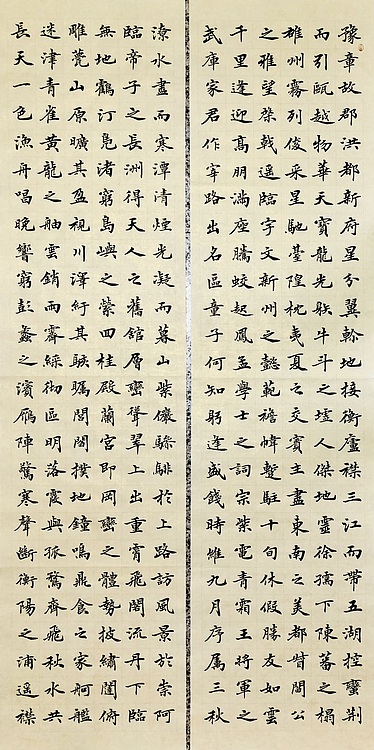 豫章故郡洪都新府星分翼軫地接衡廬襟三江而帶五湖控蠻荊
而引甌越物華天寶龍光射牛斗之墟人傑地靈徐孺下陳蕃之榻
雄州霧列俊采星馳臺隍枕夷夏之交賓主盡東南之美都督閻公
之雅望棨戟遙臨宇文新州之懿範襜帷暫駐十旬休假勝友如雲
千里逢迎高朋滿座騰蛟起鳳孟學士之詞宗紫電青霜王將軍之
武庫家君作宰路出名區童子何知躬逢盛餞時維九月序属三秋
潦水盡而寒潭清煙光凝而暮山紫儼驂騑於上路訪風景於崇阿
臨帝子之長洲得天人之舊館層巒聳翠上出重霄飛閣流丹下臨
無地鶴汀鳧渚窮島嶼之縈回桂殿蘭宮即岡巒之體勢披繡闥俯
雕甍山原曠其盈視川澤紆其駭矚閭閻撲地鐘鳴鼎食之家舸艦
迷津青雀黃龍之舳雲銷雨霽綵徹區明落霞與孤鶩齊飛秋水共
長天一色漁舟唱晚響窮彭蠡之濱雁陣驚寒聲斷衡陽之浦遙襟